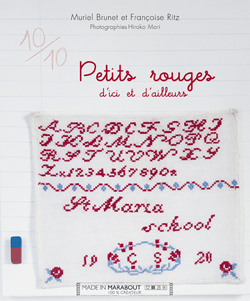 Muriel Brunet et Françoise Ritz
Photographies Hiroko Mori
10/10
Petits rouges
d'ici et d'ailleurs
ABCDEFGHI
JKLMNOPQ
RSTUVWXY
Zx1234567890x
St Maria
school
19 CS 20
MADE IN MARABOUT
100 % CRÉATEUR